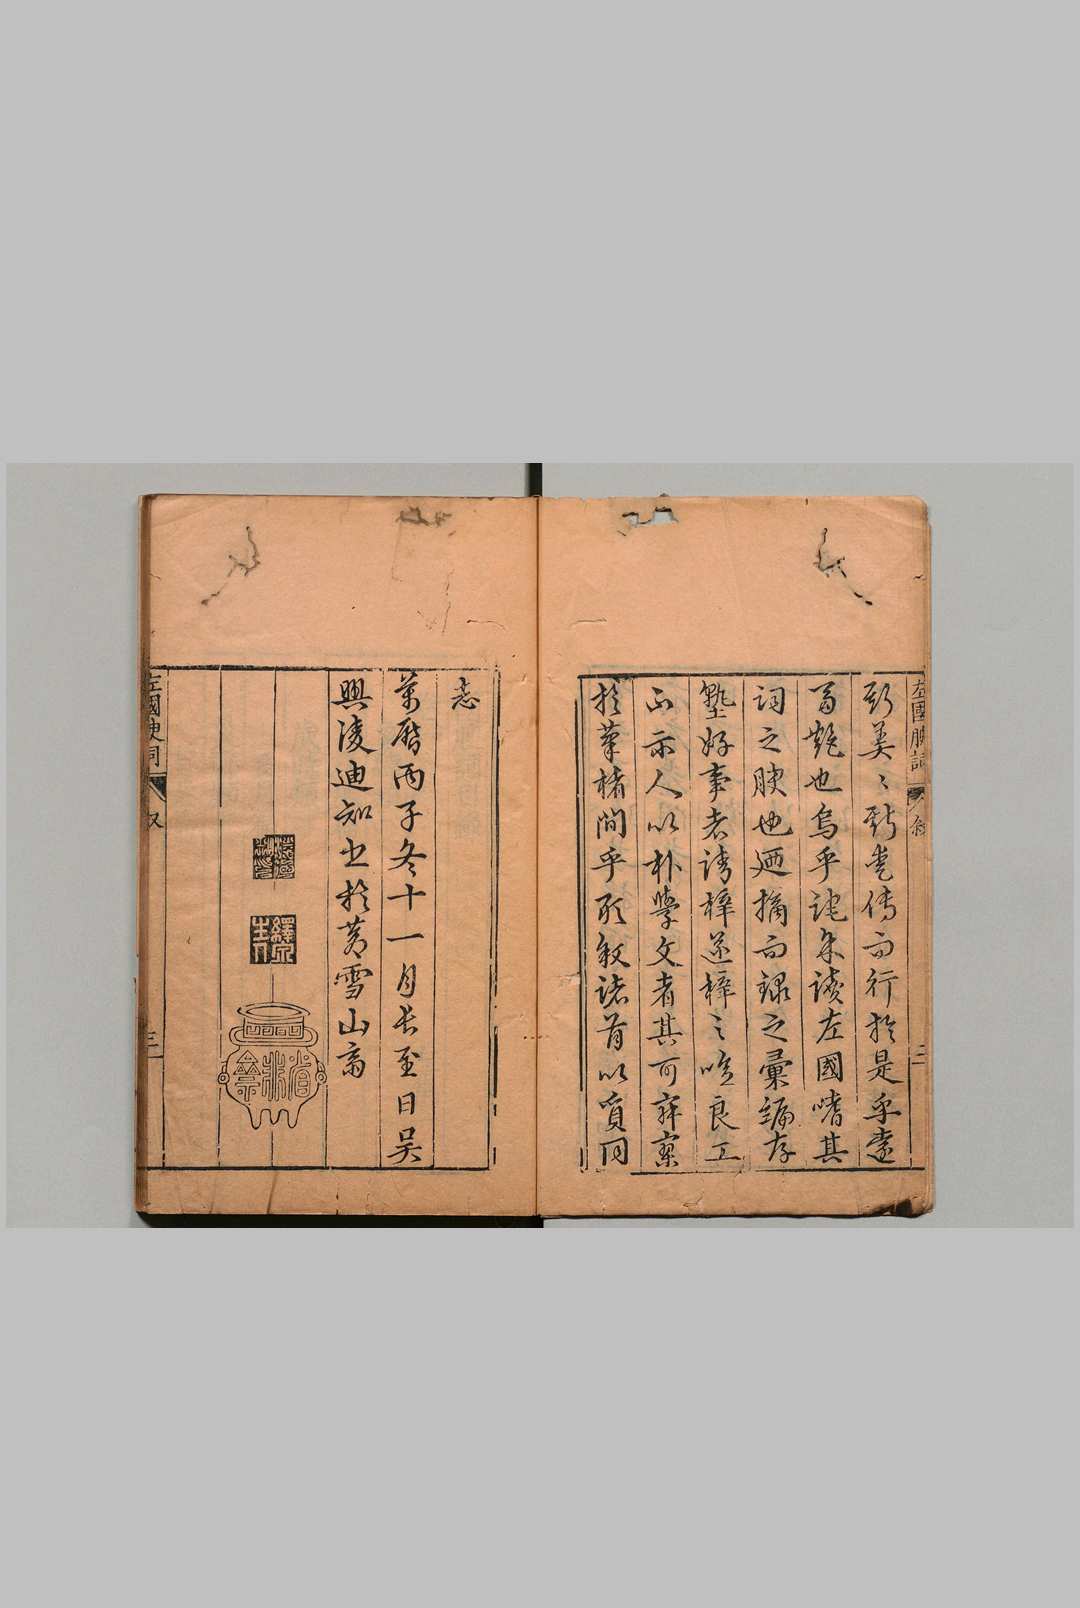 左國腴詞 敘 三
斯美〻斯愛傳而行於是乎遠
富艷也烏乎余讀左國嗜其
詞之腴也廼摘而錄之彙編存
塾好事者請梓遂梓之唯良工
不示人以朴學文者其可
於筆楮間乎敘諸首以質同
志
萬曆丙子冬十一月長至日吳
興凌迪知書於苕雪山斎
左國腴詞 叙 三